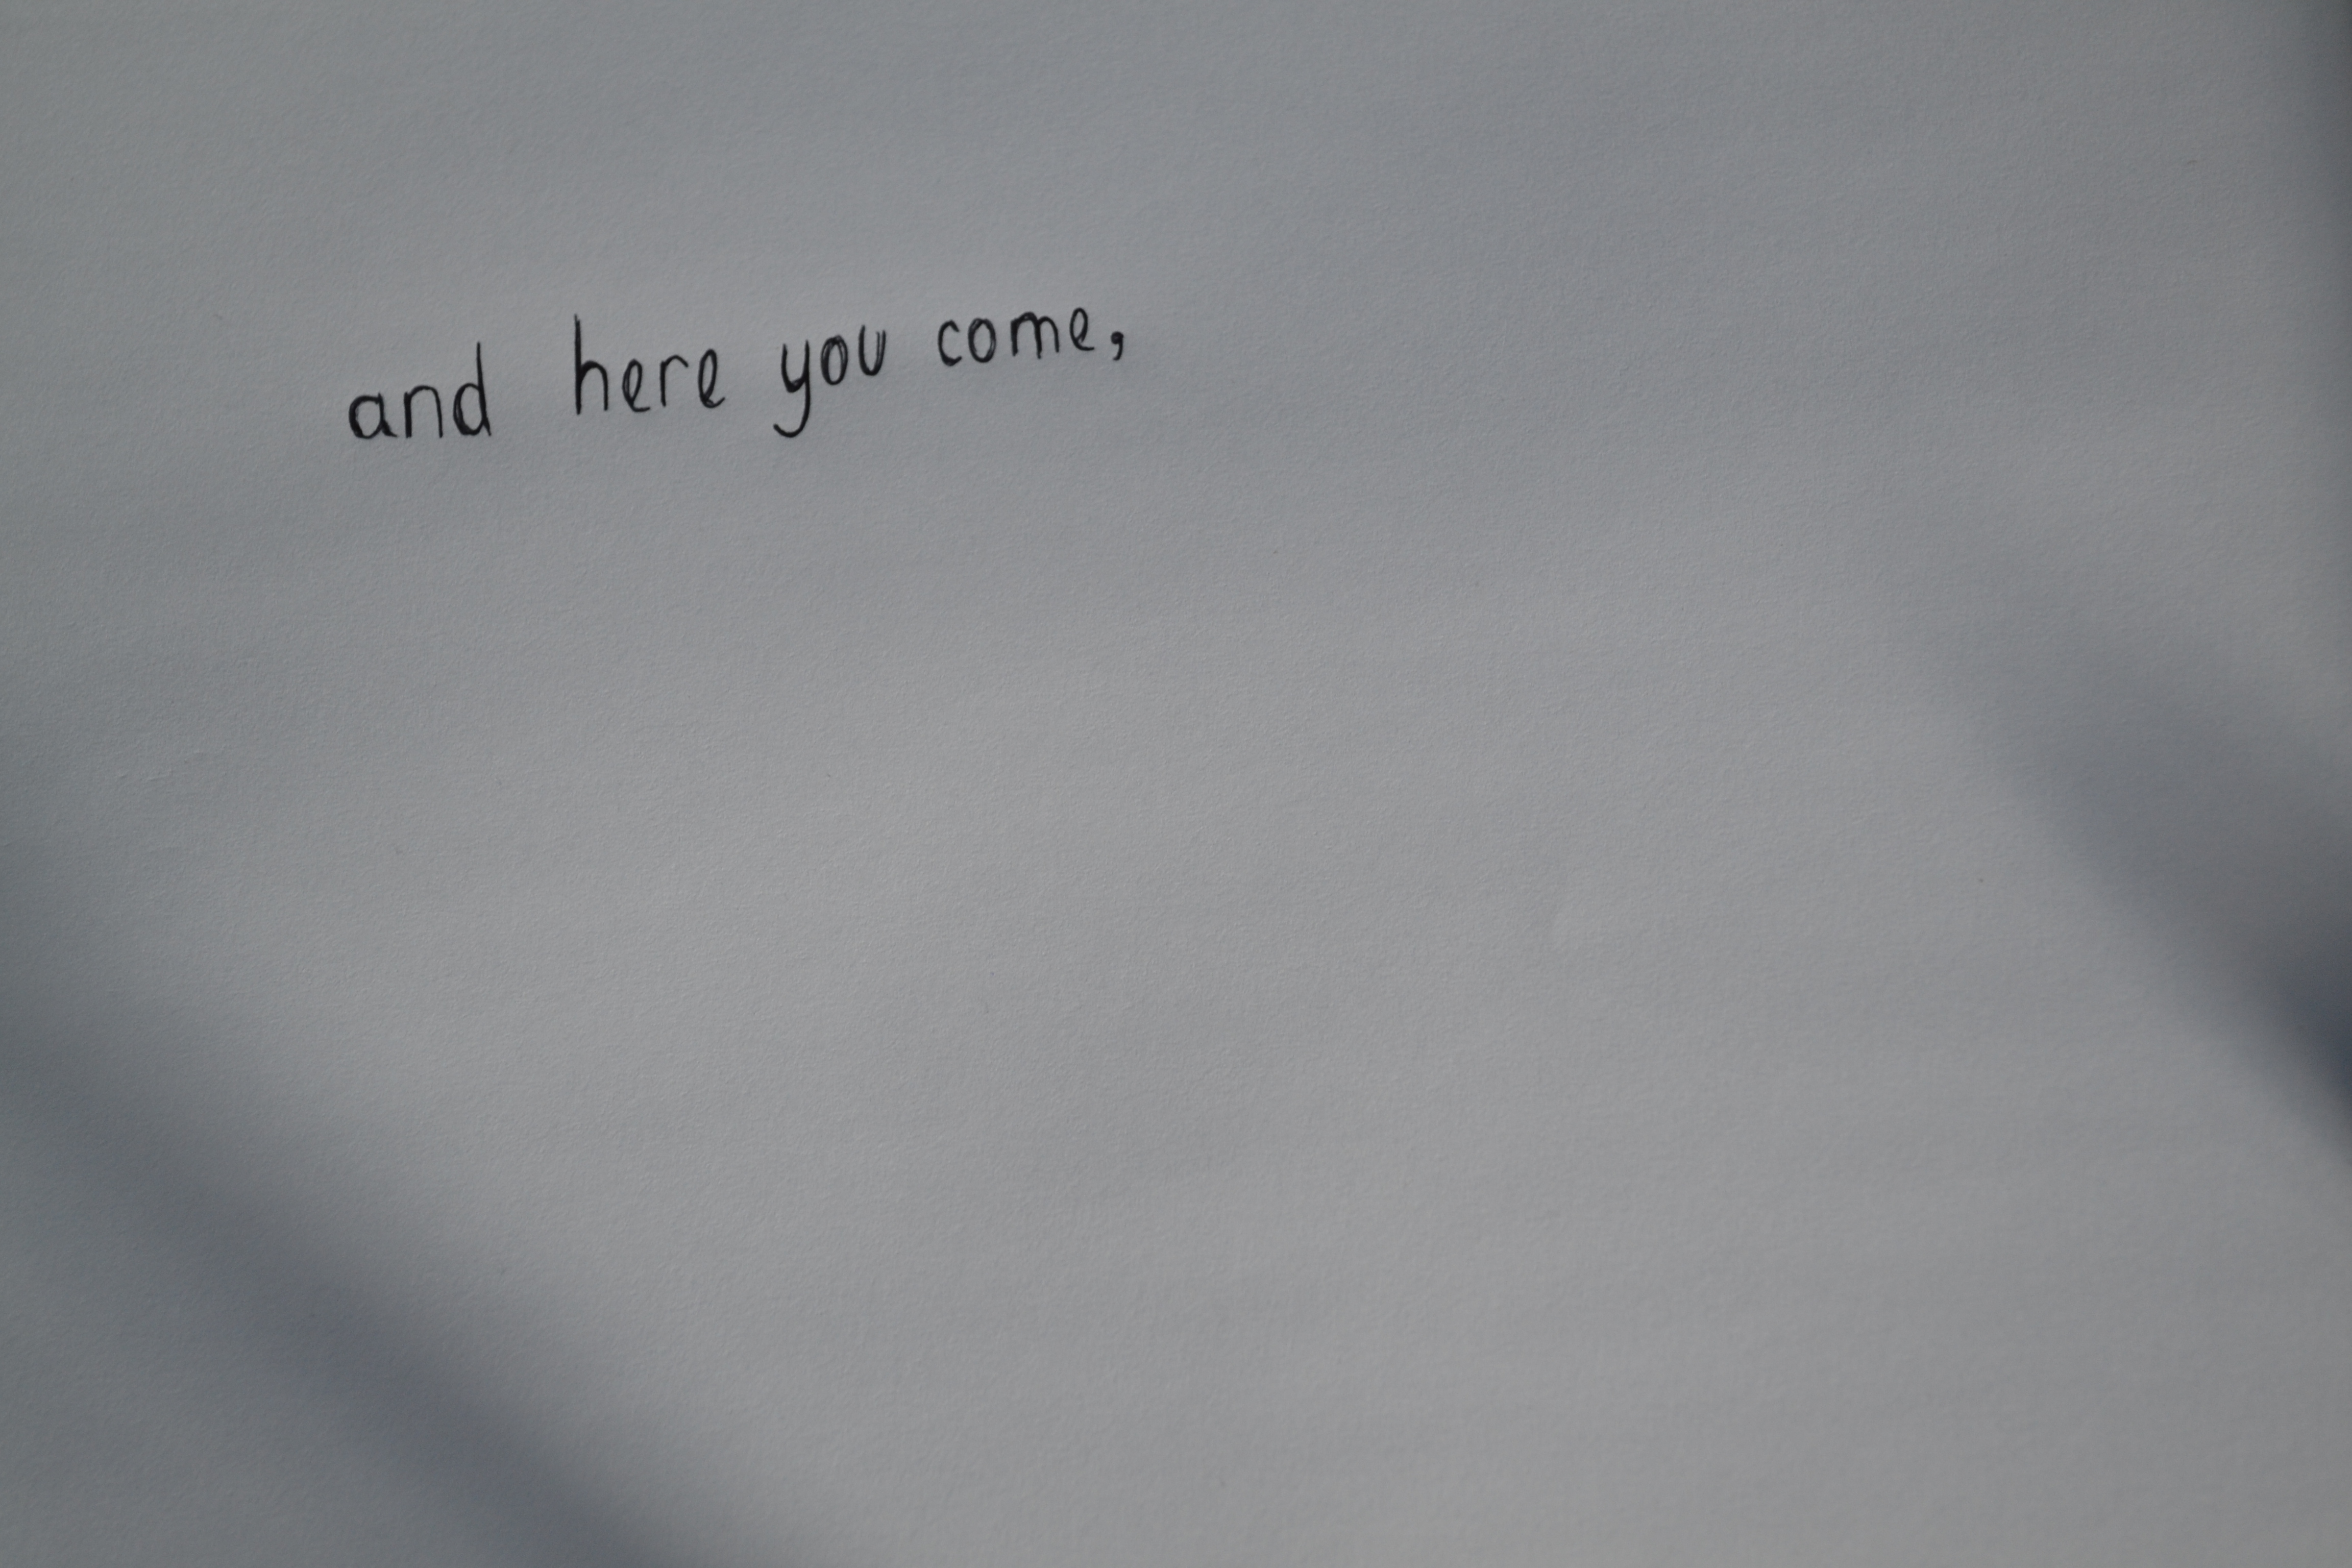 and here you come,